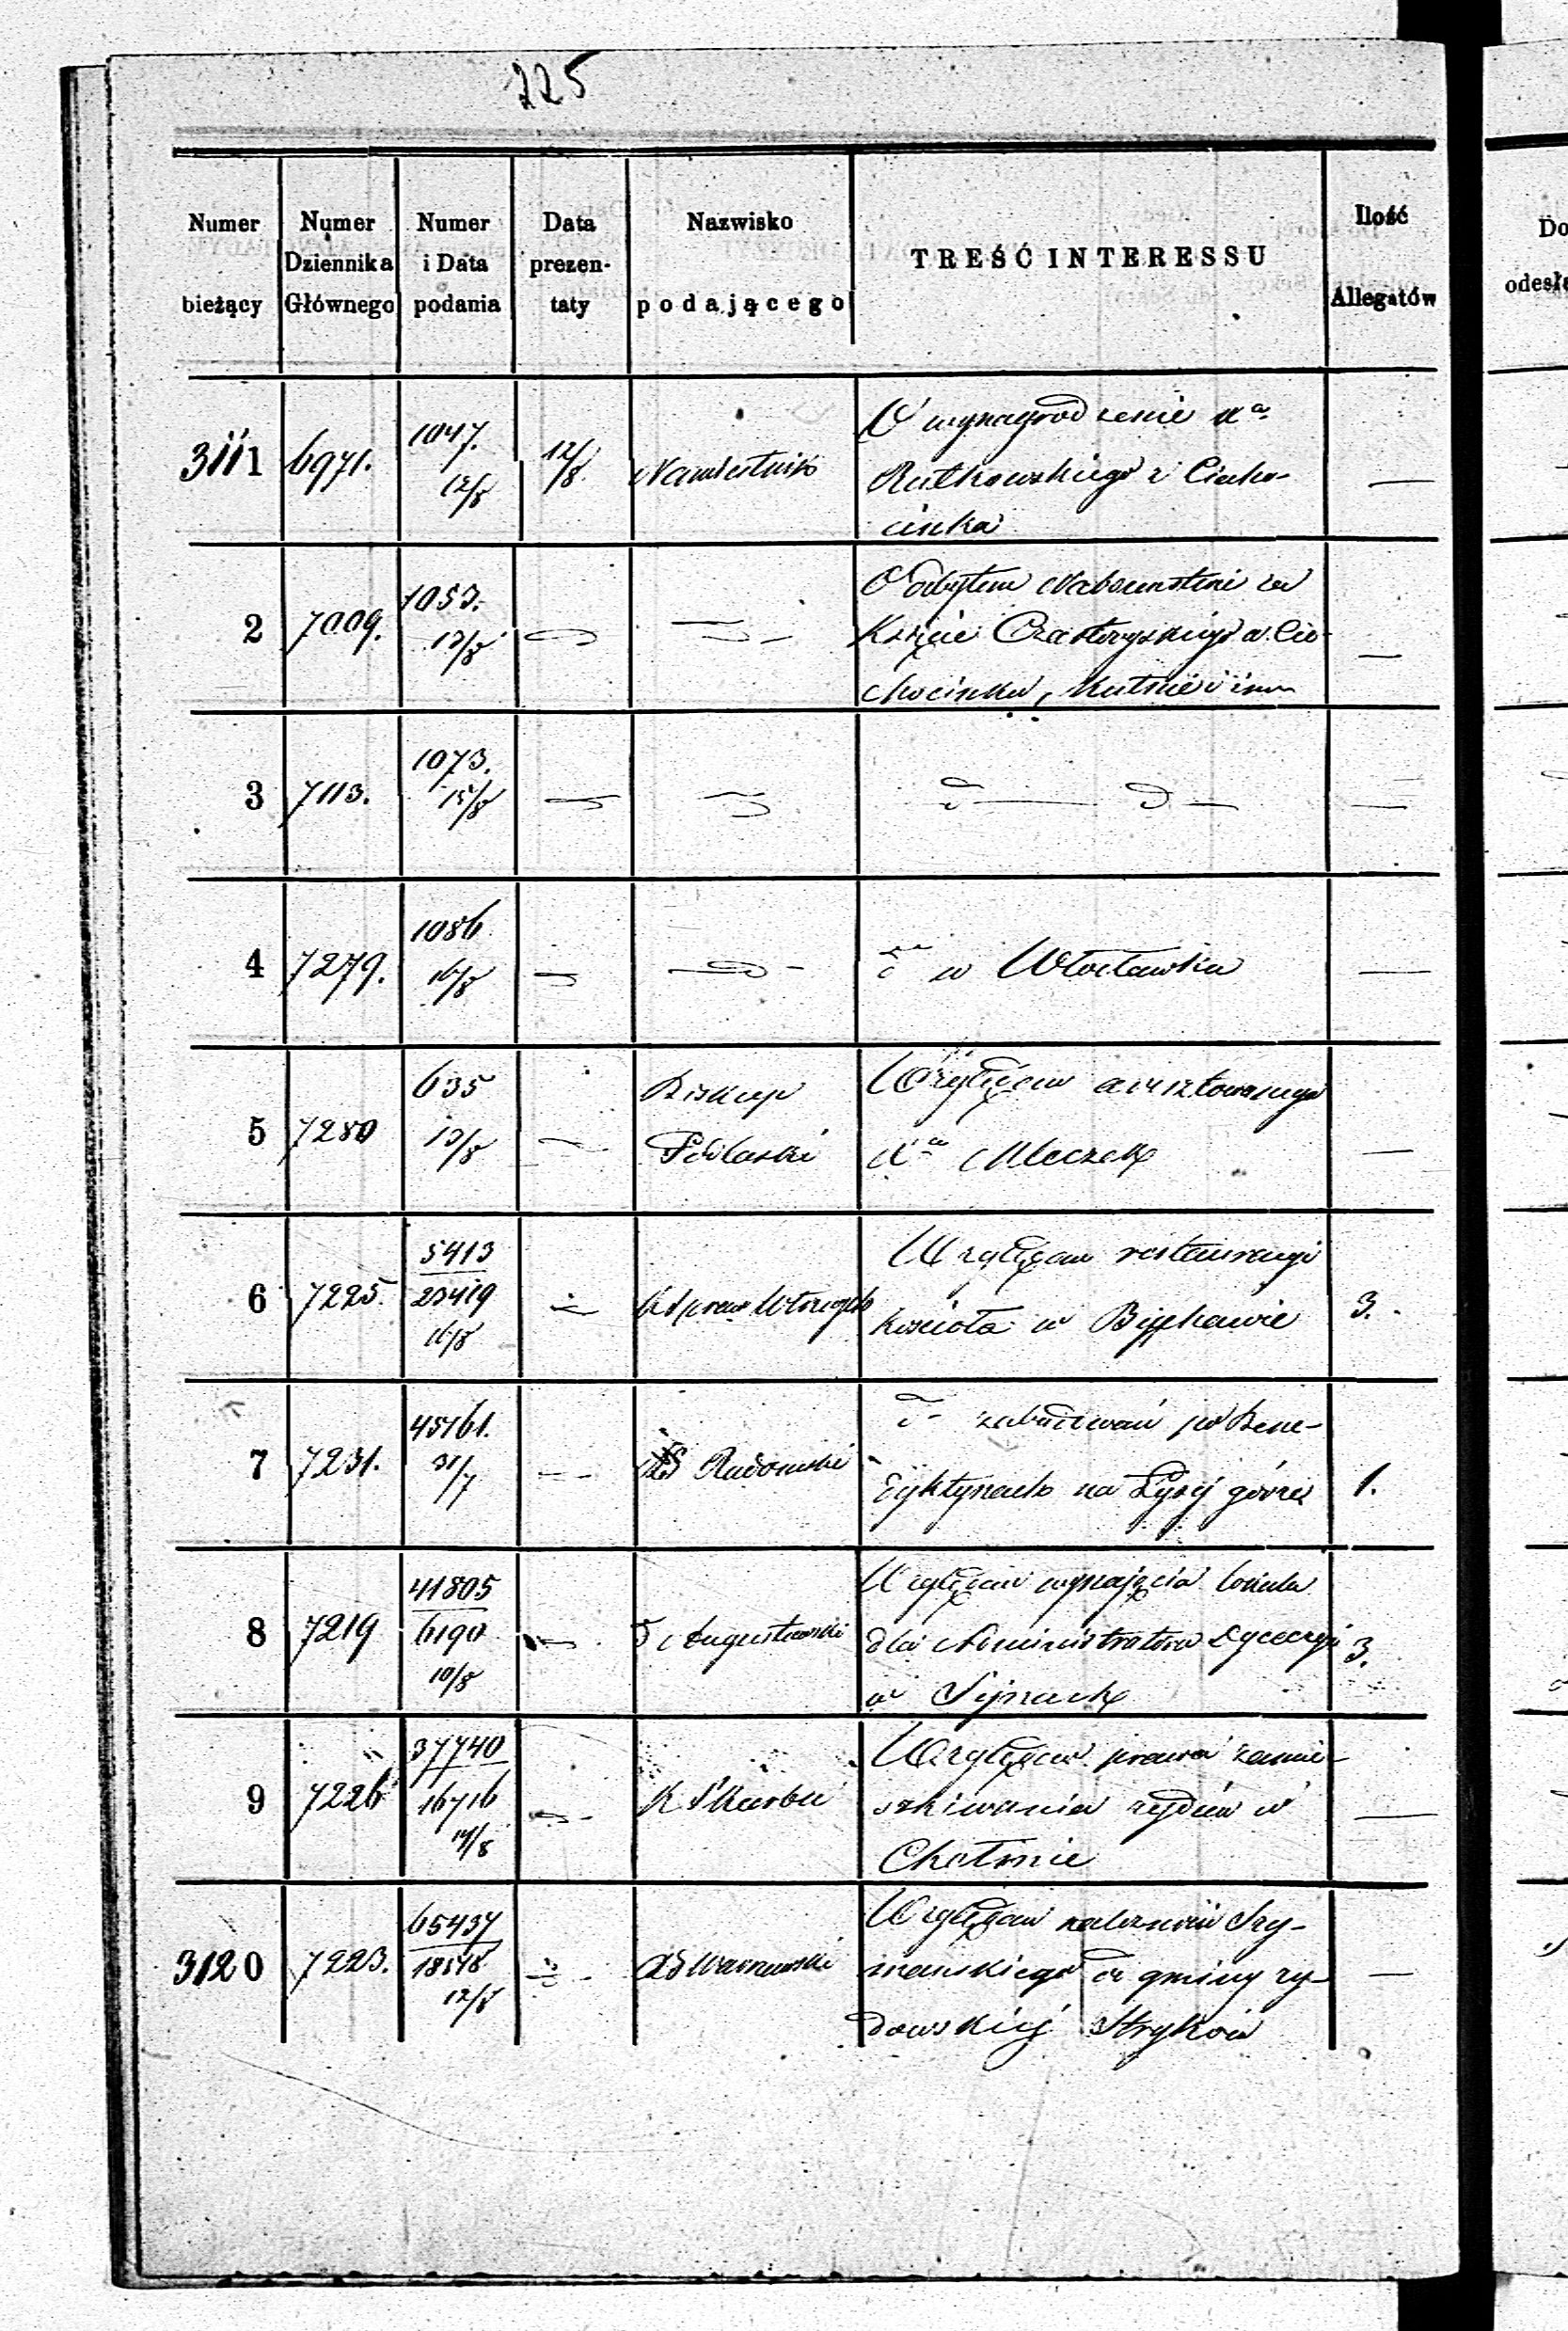 225
Numer bieżący
Numer Dziennika Głównego
Numer i Data podania
Data prezentaty
Nazwisko podającego
TREŚĆ INTERESSU
Ilość Allegatów
Do
odesła
3111 6971. 1047. 12/8 12/8. Namiestnik
O wynagrodzenie Xa
Rutkowskiego z Ciecho-
cinka —
2 7009. 1053. 13/8
O odbytem Nabożeństwie za
Księcia Czartoryskiego w Cie-
chocinku, Kutnie i inn —
3 7113. 1073. 15/8
d — d — —
4 7279. 1086 16/8
do w Włocławku —
5 7280 635 13/8
Biskup
Podlaski
Względem aresztowanego
Xa Mleczek —
6 7225. 5413 23419 16/8
K Spraw Wewnęt
Względem restauracyi
kościoła w Bychawie 3.
7 7231. 45161. 31/7
RG Radomski
d- zabudowań po Bene-
dyktynach na Łysej górze 1.
8 7219 41805 6190 10/8
Augustowski
Względem wynajęcia lokalu
dla Administratora Dyecezyi 3.
w Sejnach
9 7226 37740 16716 14/8
K Skarbu
Względem prawa zamie-
szkiwania żydów w
Chełmie —
3120 7223. 65437 18548 12/8
Warszawski
Względem należności Szy-
mańskiego od gminy ży-
dowskiej Stryków —